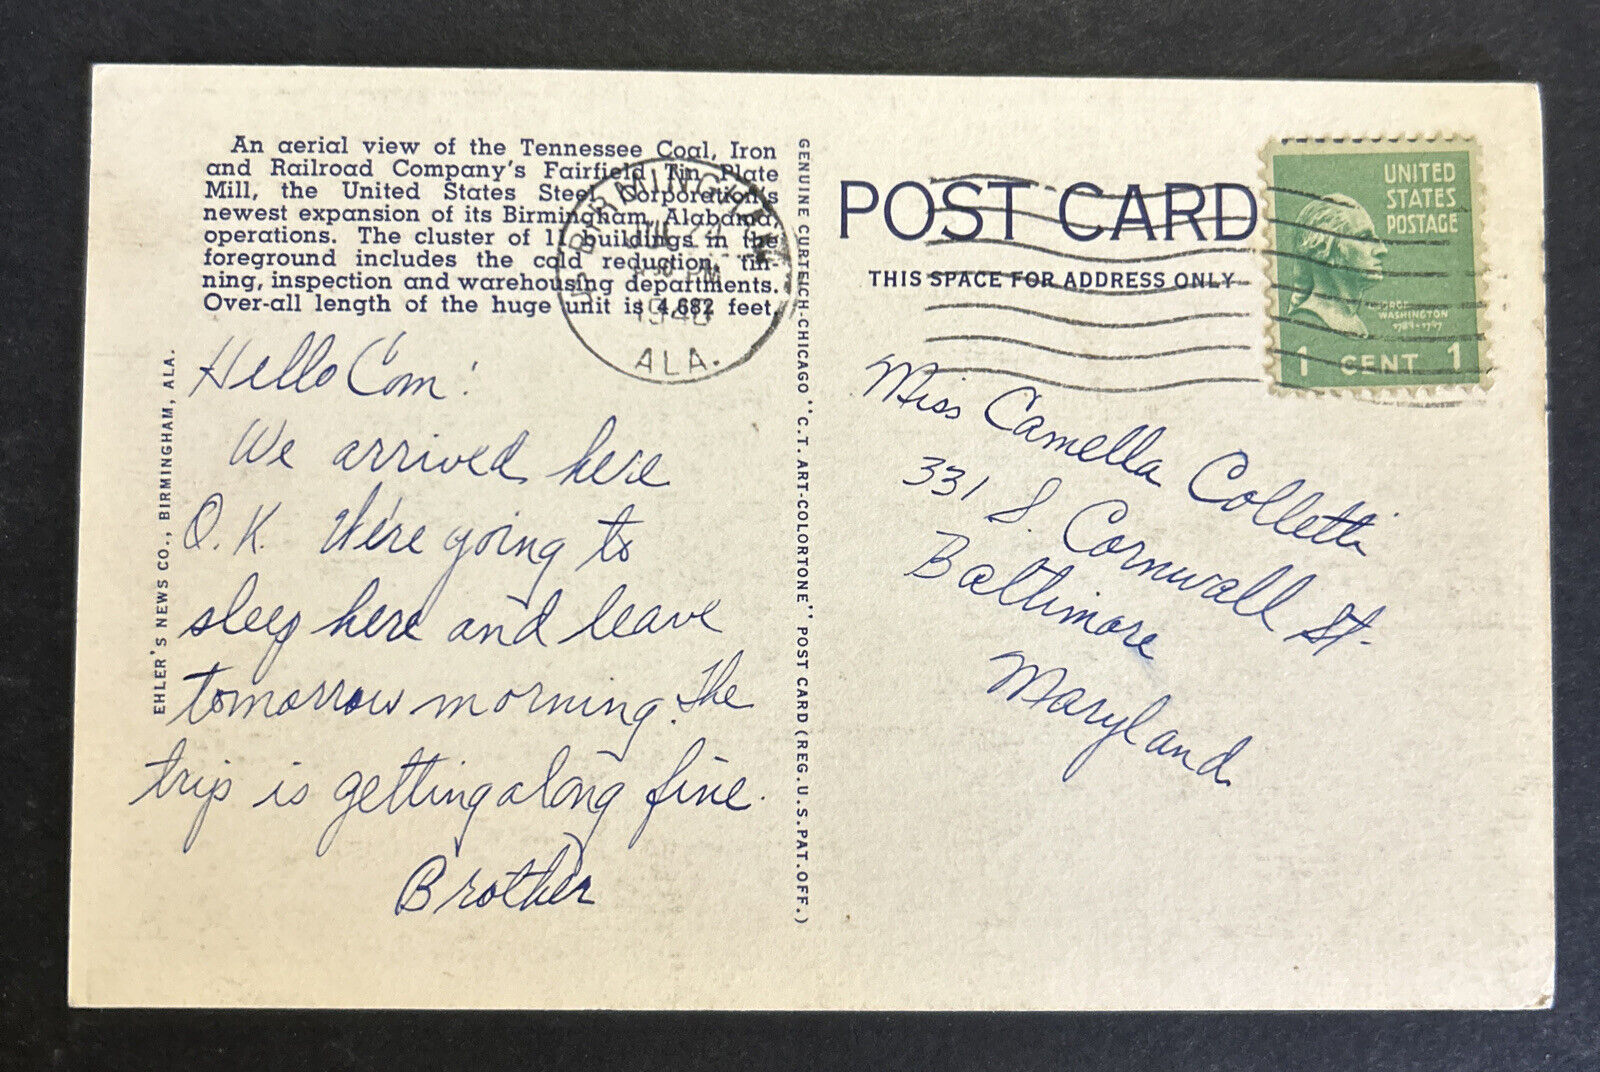 An aerial view of the Tennessee Coal, Iron
and Railroad Company's Fairfield Tin Plate
Mill, the United States Steel Corporation's
newest expansion of its Birmingham, Alabama,
operations. The cluster of 11 buildings in the
foreground includes the cold reduction, tin-
ning, inspection and warehousing departments.
Over-all length of the huge unit is 4,682 feet.
Hello Cam!
We arrived here
O.K. We're going to
sleep here and leave
tomorrow morning. The
trip is getting along fine.
Brother
EHLER'S NEWS CO., BIRMINGHAM, ALA.
BIRMINGHAM
JUL 24
PM
1940
ALA.
GENUINE CURTEICH-CHICAGO "C.T. ART-COLORTONE" POST CARD (REG. U.S. PAT. OFF.)
POST CARD
THIS SPACE FOR ADDRESS ONLY
UNITED
STATES
POSTAGE
WASHINGTON
1789-1797
1 CENT 1
Miss Camella Colletti
331 S. Cornwall St.
Baltimore
Maryland